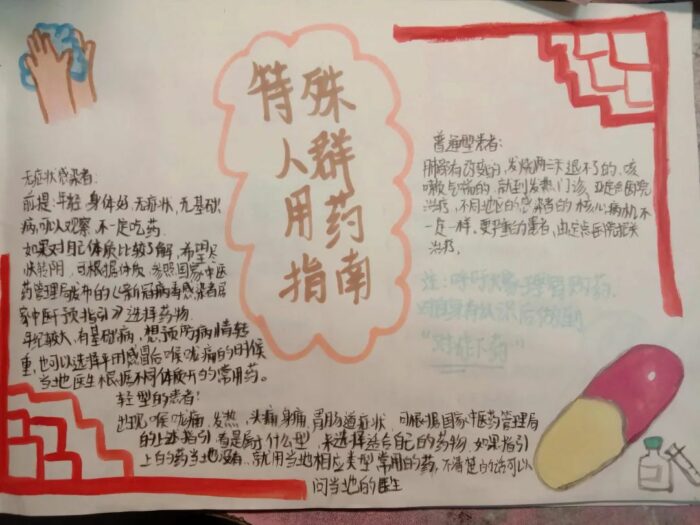 特殊
人群
用药
指南
无症状感染者:
前提:年轻,身体好,无症状,无基础
病,可以观察,不一定吃药。
如果对自己体质比较了解,希望尽
快转阴,可根据体质,参照国家中医
药管理局发布的《新冠病毒感染者居
家中医干预指引》选择药物。
年纪较大,有基础病,想预防病情转
重,也可以选择平时感冒后喉咙痛的时候
当地医生根据不同体质开的常用药。
轻型的患者:
出现喉咙痛,发热,头痛身痛,胃肠道症状,可根据国家中医药管理局
的上述指引,看是属于什么型,来选择适合自己的药物.如果指引
上的药当地没有,就用当地相应类型常用的药,不清楚的话可以
问当地的医生
普通型患者:
肺部有改变的,发烧两三天退不了的,咳
嗽气喘的,就到发热门诊,
治疗,不同地区的感染者的核心病机不
一定一样。更严重的患者,由定点医院接
治疗。
注:
"对症下药"